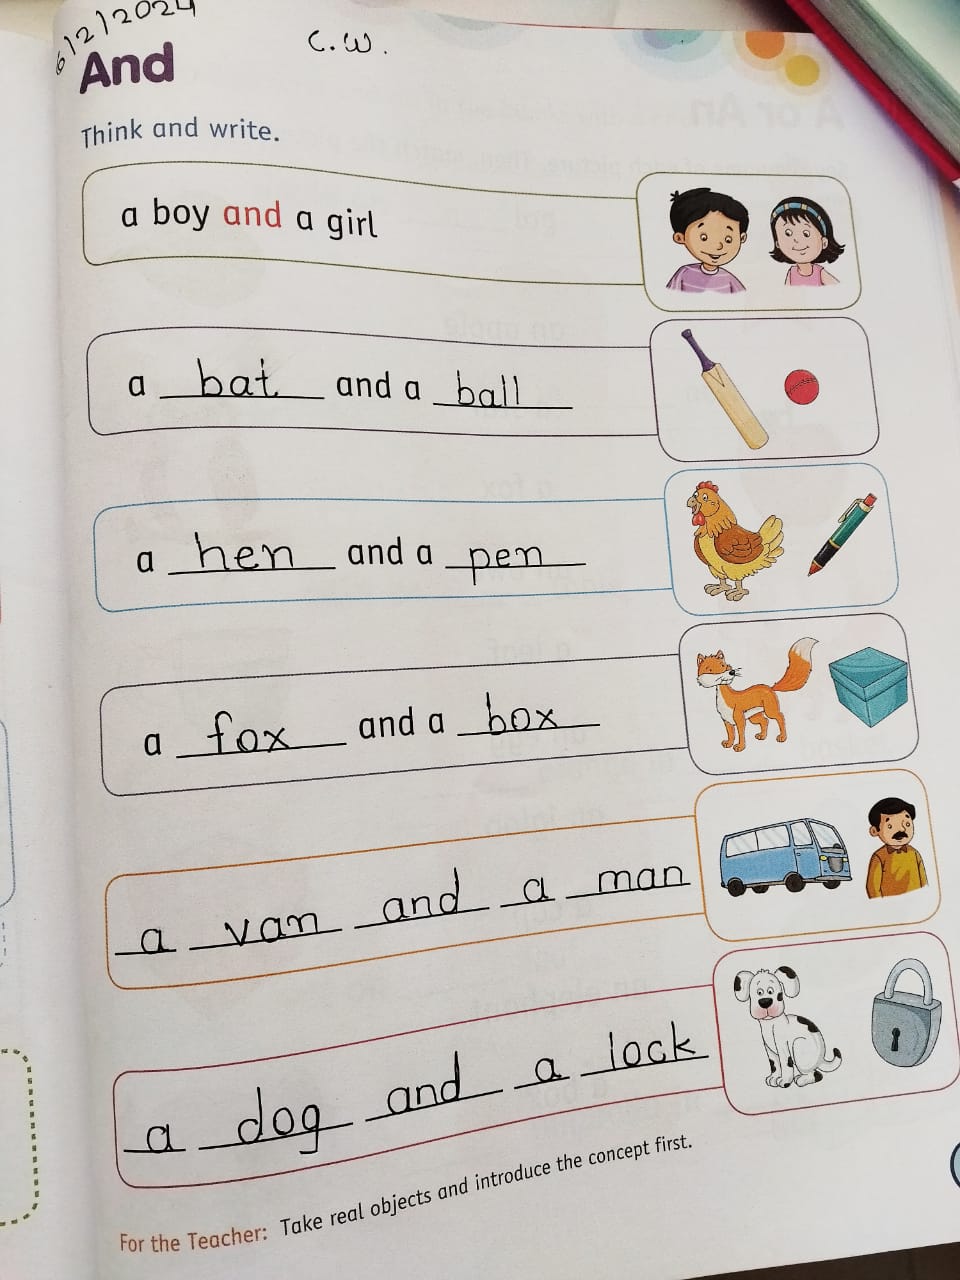 6/2/2024
C.W.
And
Think and write.
a boy and a girl
a bat and a ball
a hen and a pen
a fox and a box
a van and a man
a dog and a lock
For the Teacher: Take real objects and introduce the concept first.